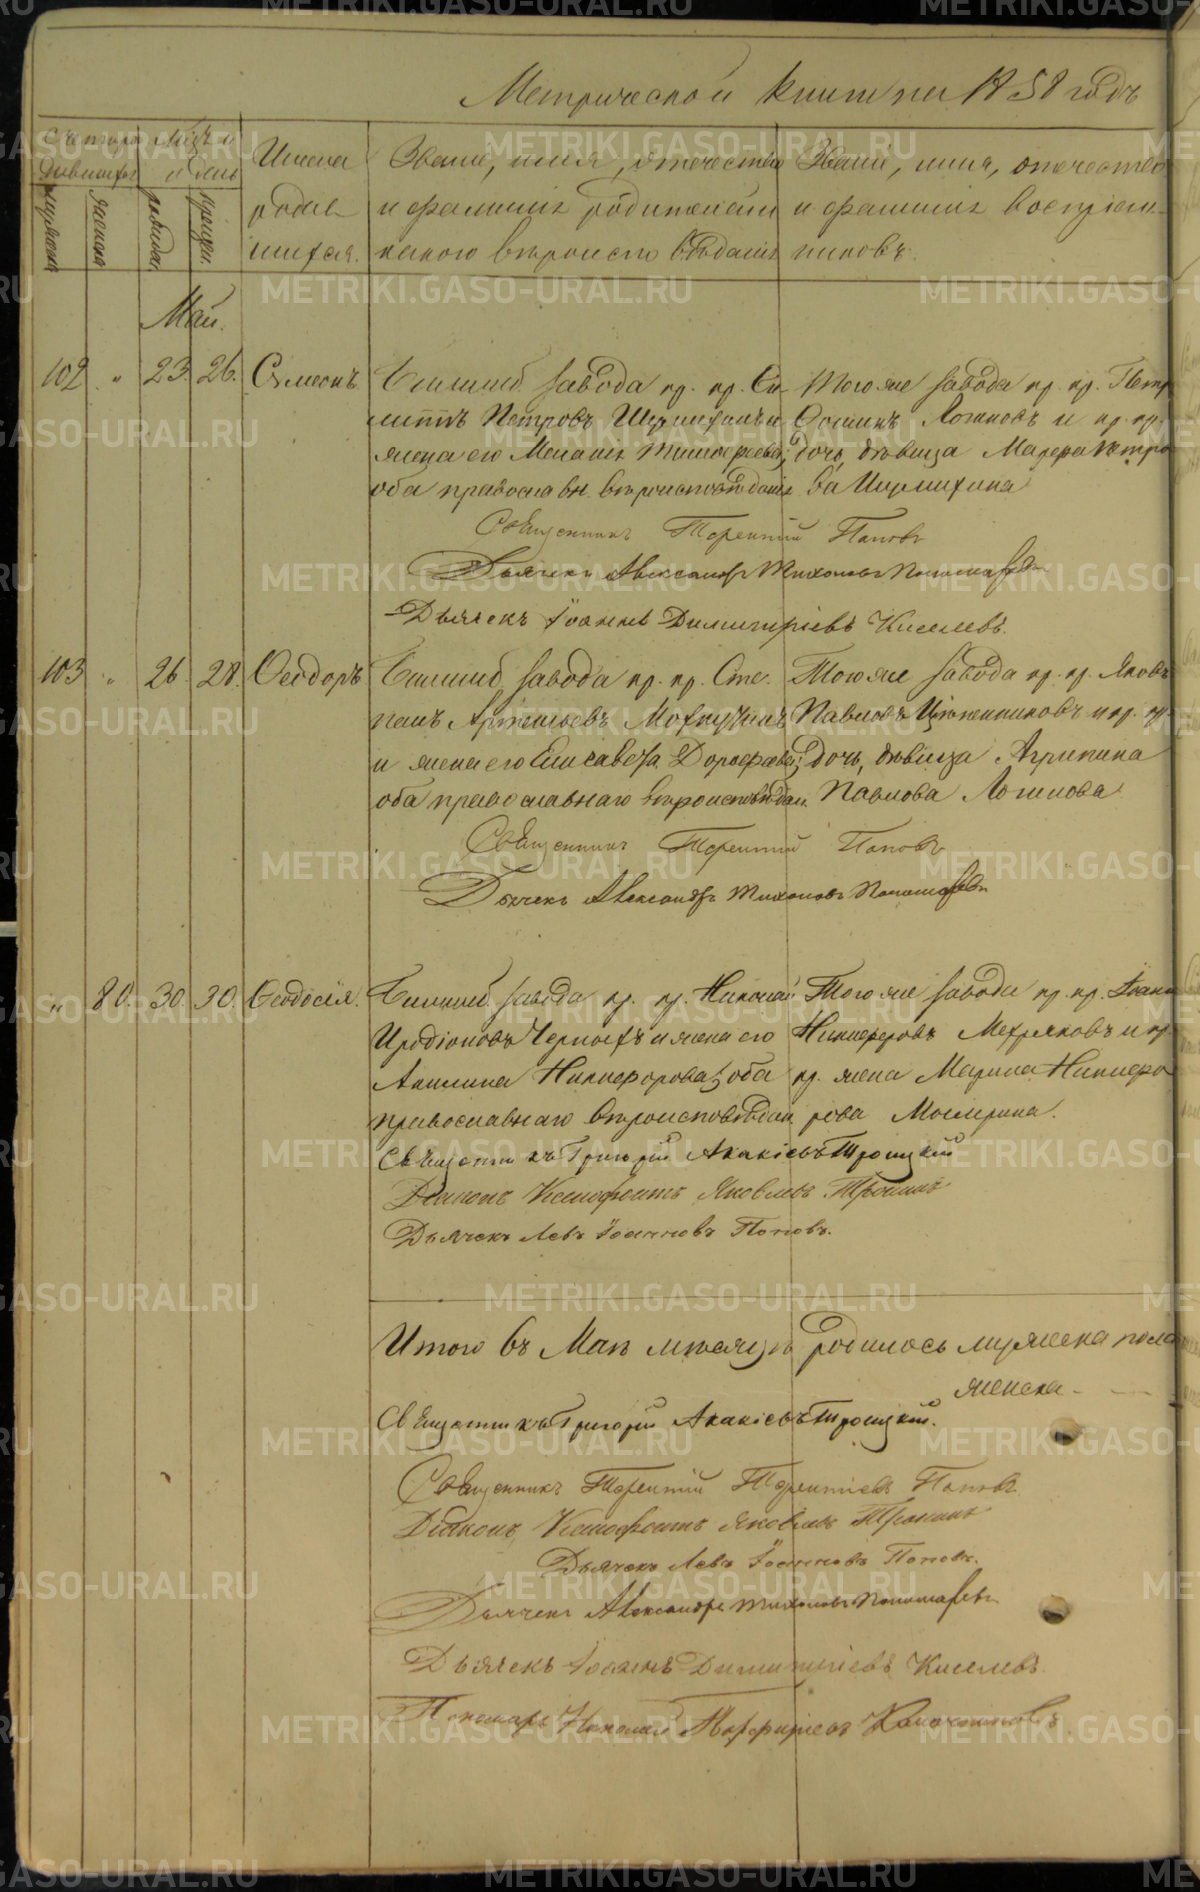 Метрической книги на 1858 годъ
Счетъ родившихся
Мѣсяцъ и день
Имена родившихся.
Званіе, имя, отечество и фамилія родителей и какого вѣроисповѣданія
Званіе, имя, отечество и фамилія воспріемниковъ.
мужеска
женска
рожден.
крещен.
Май.
102 " 23. 26. Симеонъ.
завода кр. кр. Петровъ
жена его Меланія
оба православн. вѣроисповѣданія
Того же завода кр. кр. Петръ
Логиновъ и кр. кр.
дочь, дѣвица Петро
ва
Священникъ Терентій Поповъ
Дьячекъ Александръ Тихоновъ Пономаревъ
Дьячекъ Іоаннъ Димитріевъ Киселевъ.
103 " 26. 28. Ѳеодоръ
завода кр. кр. Сте
панъ Артемьевъ
и жена его Елисавета Дорофеева;
оба православнаго вѣроисповѣдан.
Того же завода кр. кр. Яковъ
Павловъ и кр. кр.
дочь, дѣвица Агрипина
Павлова Логинова
Священникъ Терентій Поповъ
Дьячекъ Александръ Тихоновъ Пономаревъ
" 80. 30. 30. Ѳеодосія.
завода кр. кр. Николай
Иродіоновъ Черныхъ и жена его
Акилина Никифорова; оба
православнаго вѣроисповѣдан.
Того же завода кр. кр. Іванъ
Никифоровъ Мехряковъ и кр.
кр. жена Марина Никифо
рова
Священникъ Григорій Акакіевъ Троицкій
Діаконъ Ксенофонтъ Яковлевъ Тронинъ
Дьячекъ Левъ Іоанновъ Поповъ.
Итого въ Маѣ мѣсяцѣ родилось мужеска пола
женска - -
Священникъ Григорій Акакіевъ Троицкій.
Священникъ Терентій Терентіевъ Поповъ
Діаконъ Ксенофонтъ Яковлевъ Тронинъ
Дьячекъ Левъ Іоанновъ Поповъ.
Дьячекъ Александръ Тихоновъ Пономаревъ
Дьячекъ Іоаннъ Димитріевъ Киселевъ.
Пономарь Николай Порфирьевъ
METRIKI.GASO-URAL.RU